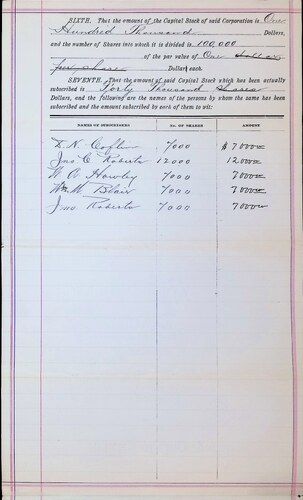 SIXTH. That the amount of the Capital Stock of said Corporation is One
Hundred Thousand Dollars,
and the number of Shares into which it is divided is 100,000
of the par value of One dollar
per share Dollars each.
SEVENTH. That the amount of said Capital Stock which has been actually
subscribed is Forty Thousand shares
Dollars, and the following are the names of the persons by whom the same has been
subscribed and the amount subscribed by each of them to wit:
NAMES OF SUBSCRIBERS No. OF SHARES AMOUNT
N. Coffin 7000 $7000.00
Jno C Roberts 12000 12000.00
C. Hawley 7000 7000.00
Wm. M. Blair 7000 7000.00
Jno Roberts 7000 7000.00